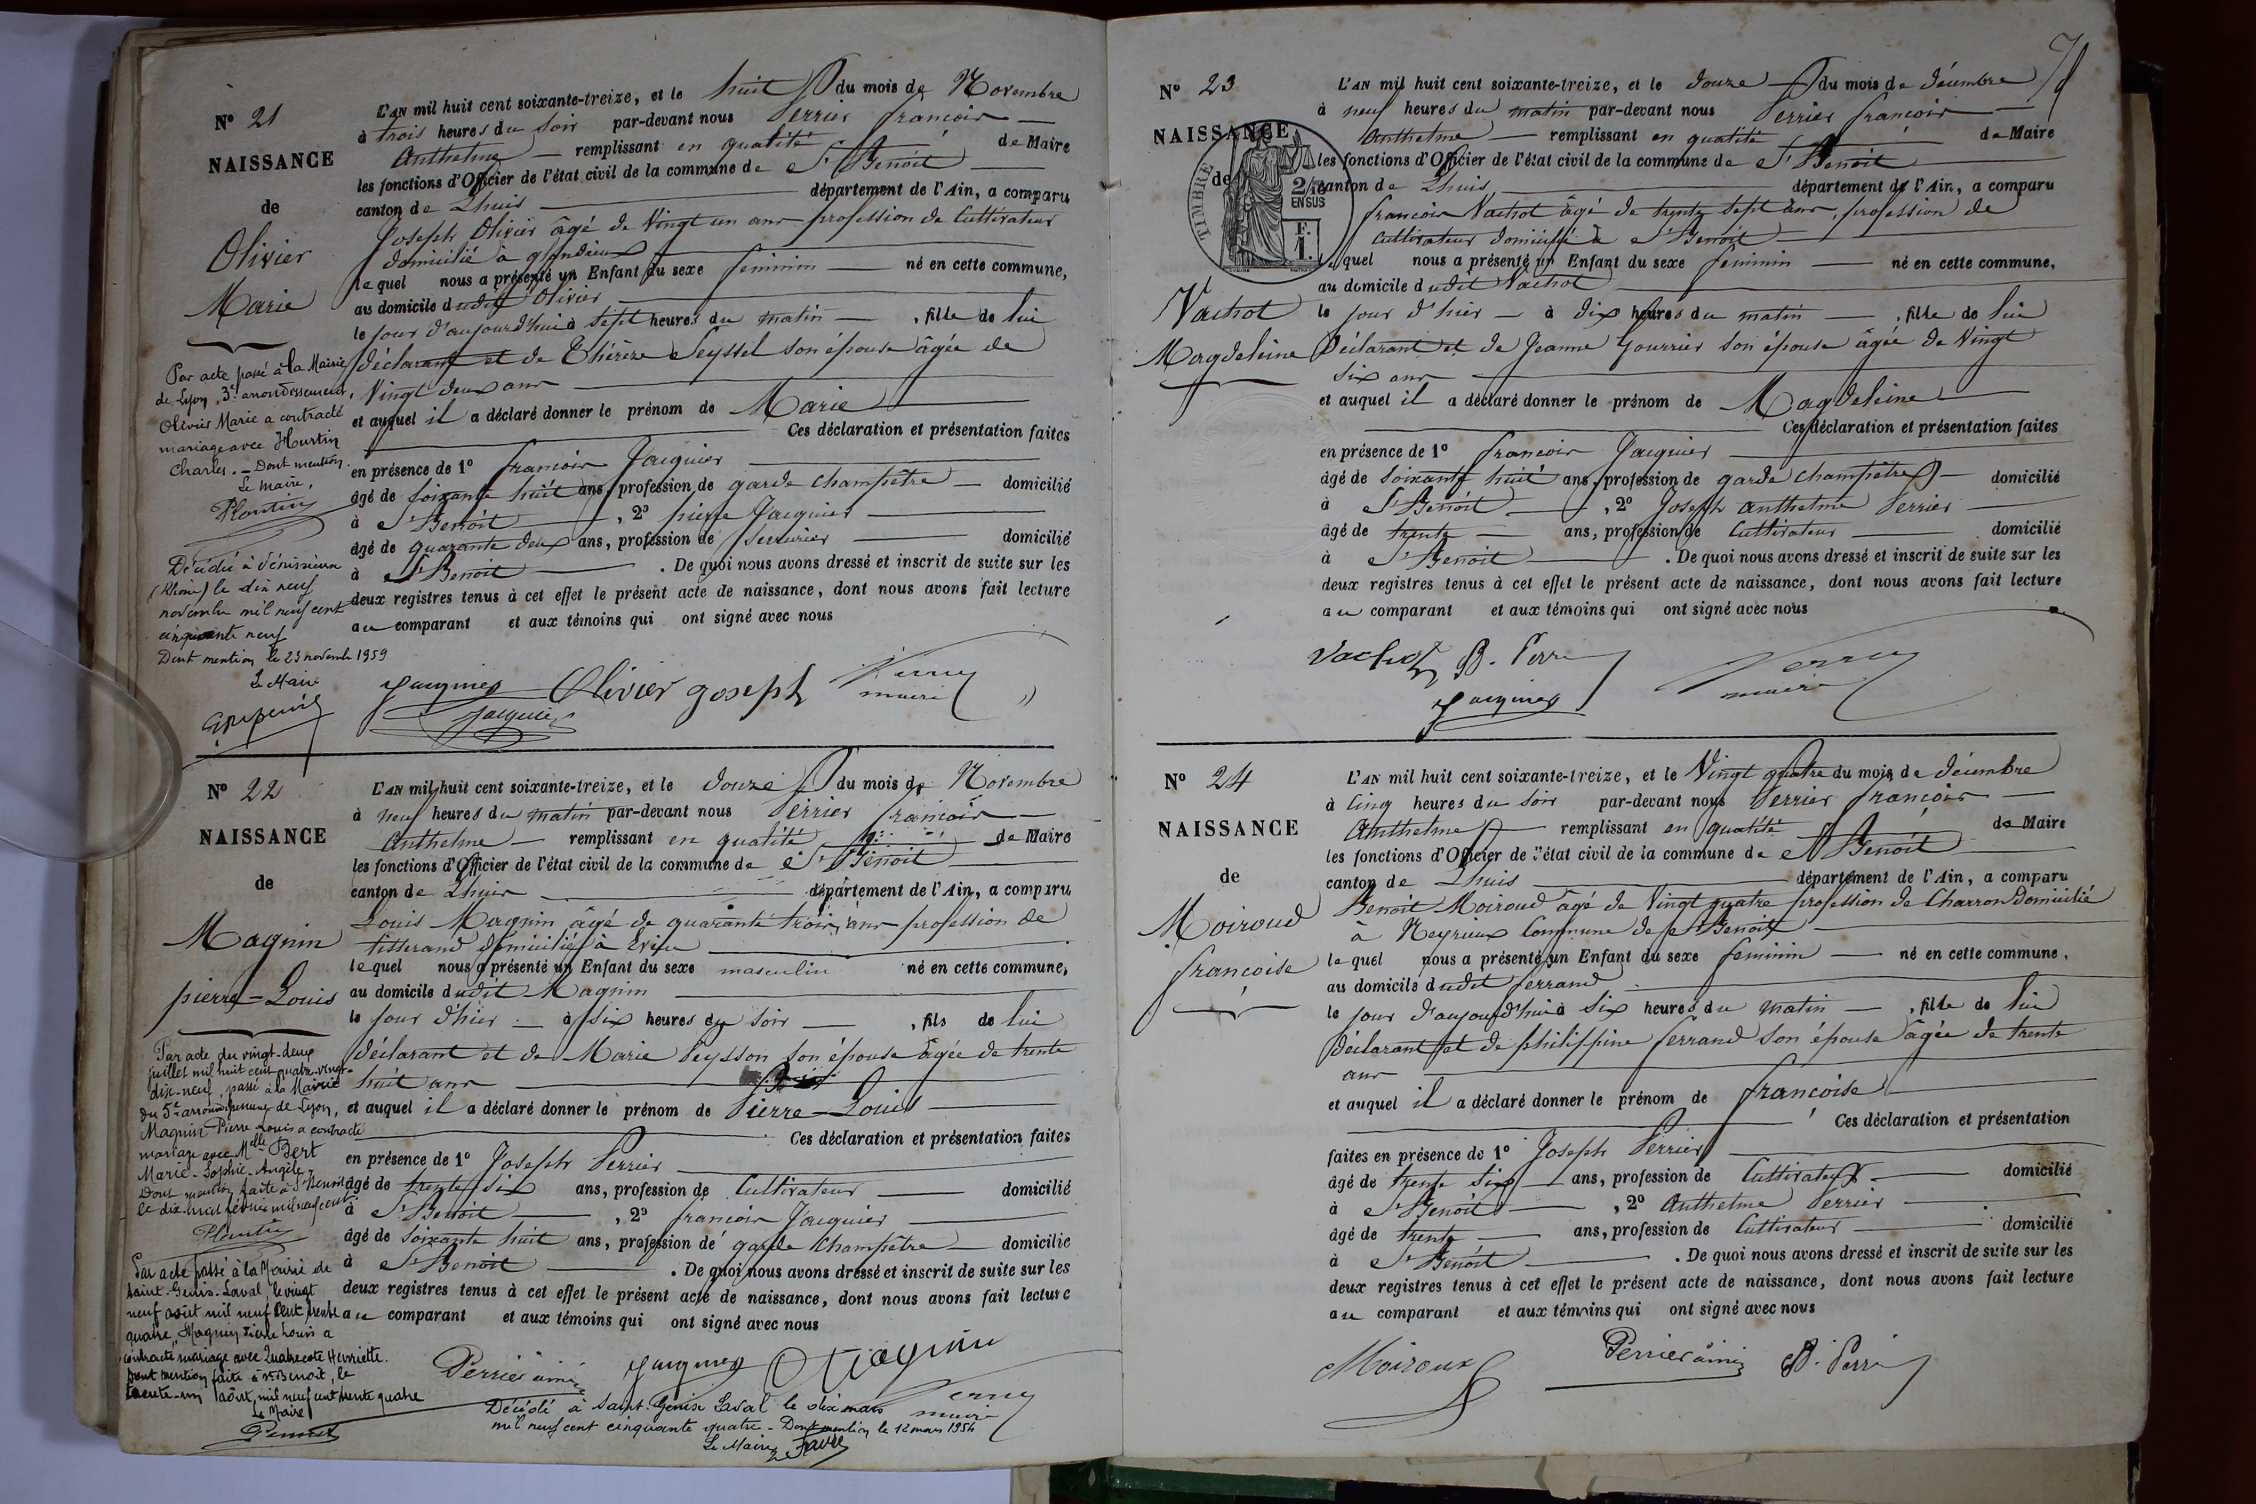 N° 21
NAISSANCE
de
Olivier
Marie
Par acte passé à la Mairie
de Lyon, 3e arrondissement,
Olivier Marie a contracté
mariage avec Hurtin
Charles. - Dont mention.
Le maire,
Plantin
Décédée à Vénissieux
(Rhône) le dix neuf
novembre mil neuf cent
cinquante neuf
Dont mention le 23 novembre 1959
Le Maire
L'AN mil huit cent soixante-treize, et le huit du mois de Novembre
à trois heures du soir par-devant nous Perrier françois
Anthelme remplissant en qualité de Maire
les fonctions d'Officier de l'état civil de la commune de St Benoit
canton de Lhuis département de l'Ain, a comparu
Joseph Olivier âgé de Vingt un ans profession de Cultivateur
domicilié à glandieux
lequel nous a présenté un Enfant du sexe feminin né en cette commune,
au domicile dudit Olivier
le jour d'aujourd'hui à sept heures du matin , fille de lui
déclarant et de Thérèze Seyssel son épouse âgée de
Vingt deux ans
et auquel il a déclaré donner le prénom de Marie
Ces déclaration et présentation faites
en présence de 1° françois Jacquier
âgé de soixante huit ans, profession de garde champêtre domicilié
à St Benoit , 2° pierre Jacquier
âgé de quarante deux ans, profession de serrurier domicilié
à St Benoit . De quoi nous avons dressé et inscrit de suite sur les
deux registres tenus à cet effet le présent acte de naissance, dont nous avons fait lecture
au comparant et aux témoins qui ont signé avec nous
Jacquier Olivier joseph Perrier
maire
Jacquier
N° 22
NAISSANCE
de
Magnin
pierre-Louis
Par acte du vingt-deux
juillet mil huit cent quatre-vingt-
dix-neuf, passé à la Mairie
du 5e arrondissement de Lyon,
Magnin Pierre Louis a contracté
mariage avec Melle Bert
Marie-Sophie-Angèle,
Dont mention faite à St Benoit
le dix-huit février mil neuf cent
Plantin
Par acte passé à la Mairie de
Saint-Genis-Laval, le vingt
neuf août mil neuf cent trente
quatre, Magnin Pierre Louis a
contracté mariage avec Quatrecote Henriette.
Dont mention faite à St Benoit, le
trente-un août, mil neuf cent trente quatre
Le Maire
L'AN mil huit cent soixante-treize, et le douze du mois de Novembre
à neuf heures du matin par-devant nous Perrier françois
Anthelme remplissant en qualité de Maire
les fonctions d'Officier de l'état civil de la commune de St Benoit
canton de Lhuis département de l'Ain, a comparu
Louis Magnin âgé de quarante trois ans profession de
tisserand domicilié à Evieu
lequel nous a présenté un Enfant du sexe masculin né en cette commune,
au domicile dudit Magnin
le jour d'hier à six heures du soir , fils de lui
déclarant et de Marie Peysson son épouse âgée de trente
huit ans
et auquel il a déclaré donner le prénom de Pierre-Louis
Ces déclaration et présentation faites
en présence de 1° Joseph Perrier
âgé de trente six ans, profession de Cultivateur domicilié
à St Benoit , 2° françois Jacquier
âgé de soixante huit ans, profession de garde Champêtre domicilié
à St Benoit . De quoi nous avons dressé et inscrit de suite sur les
deux registres tenus à cet effet le présent acte de naissance, dont nous avons fait lecture
au comparant et aux témoins qui ont signé avec nous
Perrier ainé Jacquier Magnin
Perrier
maire
Décédé à Saint-Genis Laval le dix mars
mil neuf cent cinquante quatre - Dont mention le 12 mars 1954
Le Maire Favre
78
N° 23
NAISSANCE
de
TIMBRE
2/10
EN SUS
F.
1.
Vachot
Magdeleine
L'AN mil huit cent soixante-treize, et le douze du mois de décembre
à neuf heures du matin par-devant nous Perrier françois
Anthelme remplissant en qualité de Maire
les fonctions d'Officier de l'état civil de la commune de St Benoit
canton de Lhuis département de l'Ain, a comparu
françois Vachot âgé de trente sept ans, profession de
Cultivateur domicilié à St Benoit
lequel nous a présenté un Enfant du sexe feminin né en cette commune,
au domicile dudit Vachot
le jour d'hier à dix heures du matin , fille de lui
déclarant et de Jeanne Gourrier son épouse âgée de Vingt
six ans
et auquel il a déclaré donner le prénom de Magdeleine
Ces déclaration et présentation faites
en présence de 1° françois Jacquier
âgé de soixante huit ans, profession de garde champêtre domicilié
à St Benoit , 2° Joseph anthelme Perrier
âgé de trente ans, profession de Cultivateur domicilié
à St Benoit . De quoi nous avons dressé et inscrit de suite sur les
deux registres tenus à cet effet le présent acte de naissance, dont nous avons fait lecture
au comparant et aux témoins qui ont signé avec nous
Vachot B. Perrier Perrier
maire
Jacquier
N° 24
NAISSANCE
de
Moiroud
françoise
L'AN mil huit cent soixante-treize, et le Vingt quatre du mois de décembre
à Cinq heures du soir par-devant nous Perrier françois
Anthelme remplissant en qualité de Maire
les fonctions d'Officier de l'état civil de la commune de St Benoit
canton de Lhuis département de l'Ain, a comparu
Benoit Moiroud âgé de Vingt quatre profession de Charron Domicilié
à Neyrieux Commune de St Benoit
lequel nous a présenté un Enfant du sexe feminin né en cette commune,
au domicile dudit ferrand
le jour d'aujourd'hui à six heures du matin , fille de lui
déclarant et de philippine ferrand son épouse âgée de trente
ans
et auquel il a déclaré donner le prénom de françoise
Ces déclaration et présentation
faites en présence de 1° Joseph Perrier
âgé de trente six ans, profession de Cultivateur domicilié
à St Benoit , 2° Anthelme Perrier
âgé de trente ans, profession de Cultivateur domicilié
à St Benoit . De quoi nous avons dressé et inscrit de suite sur les
deux registres tenus à cet effet le présent acte de naissance, dont nous avons fait lecture
au comparant et aux témoins qui ont signé avec nous
Moiroux Perrier ainé B. Perrier